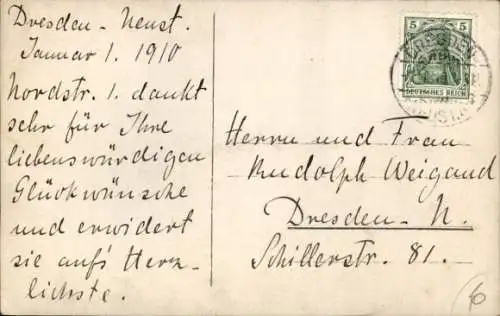 Dresden-Neust.
Januar 1. 1910
Nordstr. 1. dankt
sehr für Ihre
liebenswürdigen
Glückwünsche
und erwidert
sie auf's Herz-
lichste.
5 5
DEUTSCHES REICH
DRESDEN
Herrn und Frau
Rudolph Weigand
Dresden-N.
Schillerstr. 81.
6